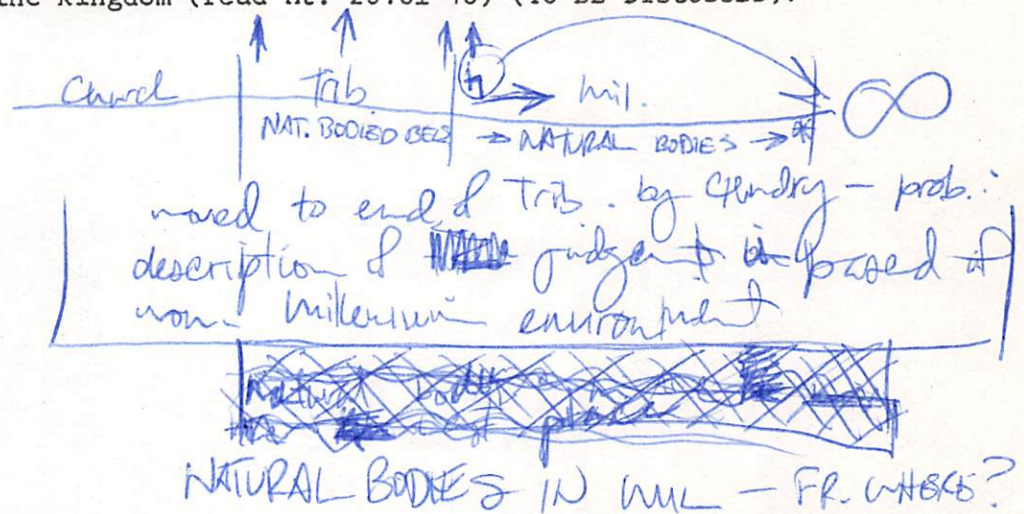 the Kingdom (read Mt. 25:31-46) (TO BE DISCUSSED).
Church Trib mil. ∞
NAT. BODIED BELS → NATURAL BODIES → *
moved to end of Trib. by Gundry — prob.:
description of judgement is based of
non- millenium environment
natural place
NATURAL BODIES IN MIL — FR. WHERE?